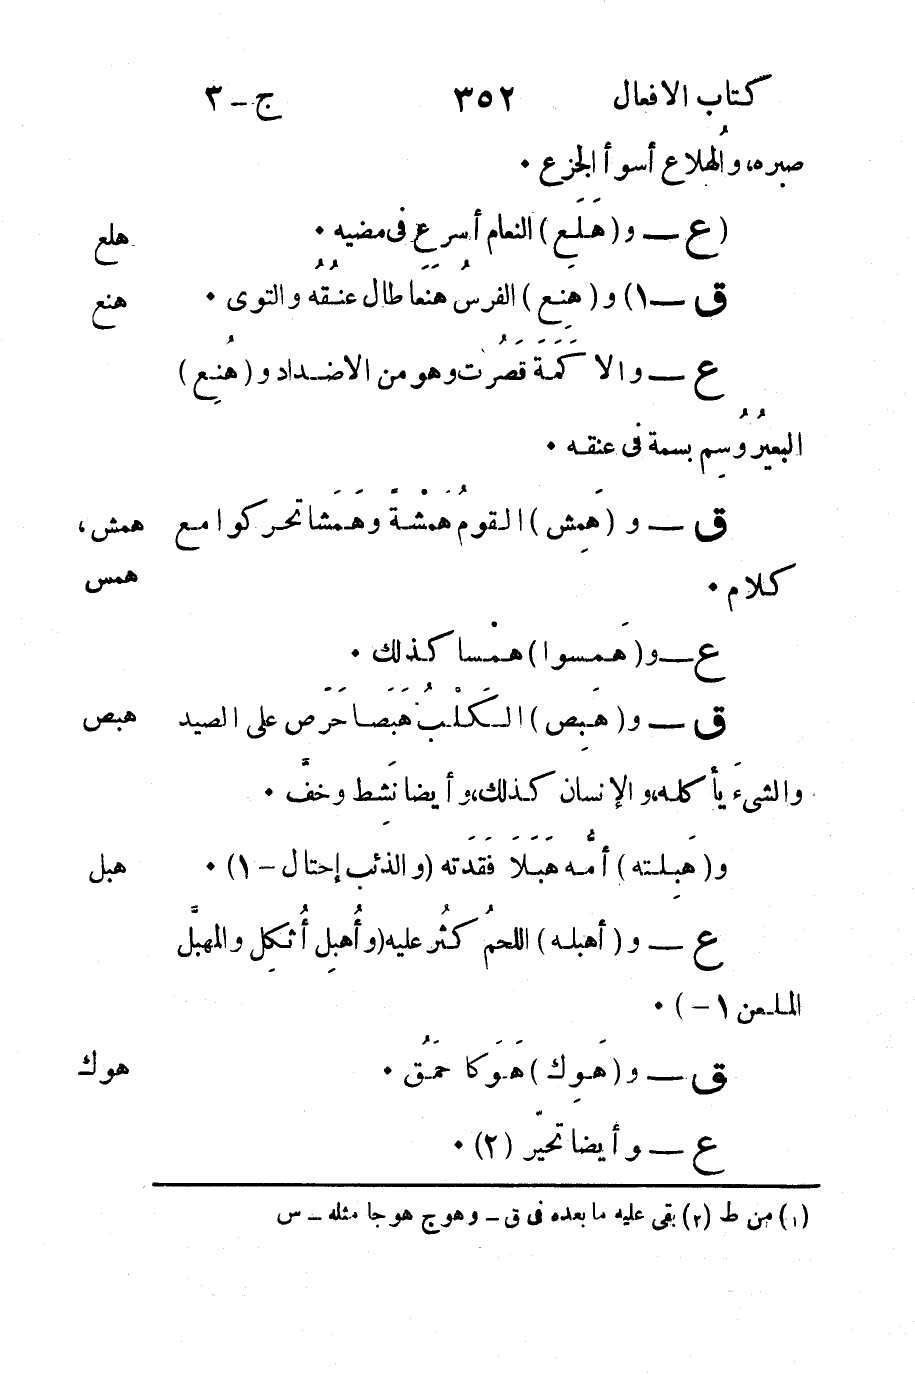 كتاب الافعال ٣٥٢ ج - ٣
صبره، والهُلاع أسوأ الجزع ٠
(ع — و (هَلَعِ) النعام أسرع فى مضيه ٠ هلع
ق — ١) و (هنِع) الفرسُ هَنَعًا طال عنُقُه والتوى ٠ هنع
ع — والاكَمَة قَصُرَت وهو من الاضداد و (هُنِع)
البعيرُ وُسِم بسمة فى عنقه ٠
ق — و (هَمِش) القومُ هَمْشَةً وهَمَشَا تحركوا مع همش،
كلام ٠ همس
ع — و (هَمسوا) همْسا كذلك ٠
ق — و (هَبِص) الكَلْبُ هَبَصا حَرَص على الصيد هبص
والشىءَ يأكله، والإنسان كذلك، وأيضا نَشِط وخفَّ ٠
و (هَبِلته) أمُّه هَبَلَا فقَدَته (والذئب إحتال - ١) ٠ هبل
ع — و (أهبله) اللحمُ كثُر عليه (وأُهبِل أُثكِل والمهبَّل
الملعن ١ -) ٠
ق — و (هَوِك) هَوَكا حَمُق ٠ هوك
ع — وأيضا تحيّر (٢) ٠
(١) من ط (٢) بقى عليه ما بعده فى ق - وهوج هوجا مثله - س